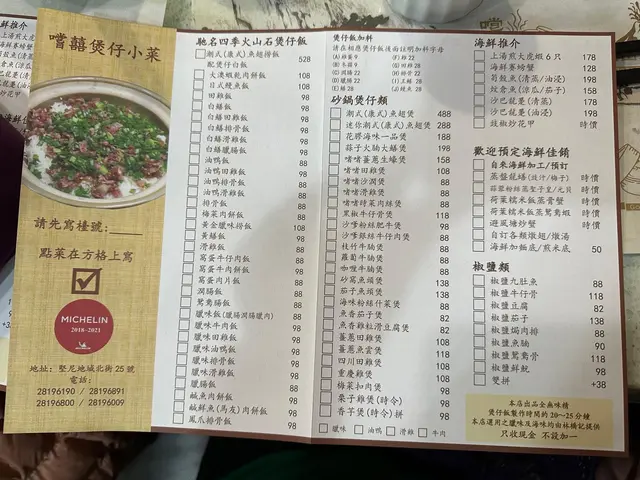 嚐囍煲仔小菜
請先寫檯號:____
點菜在方格上寫
MICHELIN
2018-2021
地址: 堅尼地城北街25號
電話:
28196190 / 28196891
28196800 / 28196009
馳名四季火山石煲仔飯
潮式(康式)魚翅撈飯 528
配煲仔白飯
大澳蝦乾肉餅飯 108
日式鰻魚飯 108
田雞飯 98
白鱔飯 98
白鱔田雞飯 98
白鱔排骨飯 98
白鱔滑雞飯 98
白鱔臘腸飯 98
油鴨飯 98
油鴨田雞飯 98
油鴨排骨飯 98
油鴨滑雞飯 98
排骨飯 88
梅菜肉餅飯 98
黃金臘味撈飯 108
黃鱔飯 98
滑雞飯 88
窩蛋牛仔肉飯 98
窩蛋牛肉餅飯 98
窩蛋肉片飯 98
潤腸飯 88
鴛鴦腸飯 88
臘味飯(臘腸潤腸臘肉) 88
臘味牛肉飯 98
臘味田雞飯 98
臘味油鴨飯 98
臘味排骨飯 98
臘味滑雞飯 98
臘腸飯 88
鹹魚肉餅飯 98
鹹鮮魚(馬友)肉餅飯 98
鳳爪排骨飯 98
煲仔飯加料
請在相應煲仔飯後面註明加料字母
砂鍋煲仔類
潮式(康式)魚翅煲 488
迷你潮式(康式)魚翅煲 288
花膠海味一品煲 188
蒜子火腩大鱔煲 128
啫啫薑蔥生蠔煲 158
啫啫田雞煲 108
啫啫沙潤煲 88
啫啫滑雞煲 88
啫啫時菜肉絲煲 88
黑椒牛仔骨煲 118
沙爹粉絲肥牛煲 98
沙爹銀絲牛仔肉煲 98
枝竹牛腩煲 98
蘿蔔牛腩煲 98
咖喱牛腩煲 98
砂窩魚頭煲 138
茄子魚頭煲 138
海味粉絲什菜煲 88
魚香茄子煲 82
魚香雞粒滑豆腐煲 82
薑蔥田雞煲 108
薑蔥魚雲煲 108
四川田雞煲 108
重慶雞煲 108
梅菜扣肉煲 98
栗子雞煲(時令) 98
香芋煲(時令)拼 98
臘味 油鴨 滑雞 牛肉
海鮮推介
上湯煎大虎蝦6只 178
海鮮賽螃蟹 128
菊鮫魚(清蒸/油浸) 198
炆倉魚(涼瓜/茄子) 158
沙巴龍躉(清蒸) 178
沙巴龍躉(油浸) 198
豉椒炒花甲 時價
歡迎預定海鮮佳餚
自來海鮮加工/預訂
蒸盤龍鱔(豉汁/梅子) 時價
蒜蓉粉絲蒸聖子皇/元貝 時價
荷葉糯米飯蒸膏蟹 時價
荷葉糯米飯蒸鴛鴦蝦 時價
避風塘炒蟹 時價
自訂各類燉翅/燉湯
海鮮加麵底/煎米底 50
椒鹽類
椒鹽九肚魚 88
椒鹽牛仔骨 118
椒鹽豆腐 82
椒鹽茄子 138
椒鹽焗肉排 88
椒鹽魚腩 90
椒鹽鴛鴦骨 118
椒鹽鮮魷 98
雙拼 +38
本店出品全無味精
煲仔飯製作時間約20~25分鐘
本店選用之臘味及海味均由林橋記提供
只收現金 不設加一